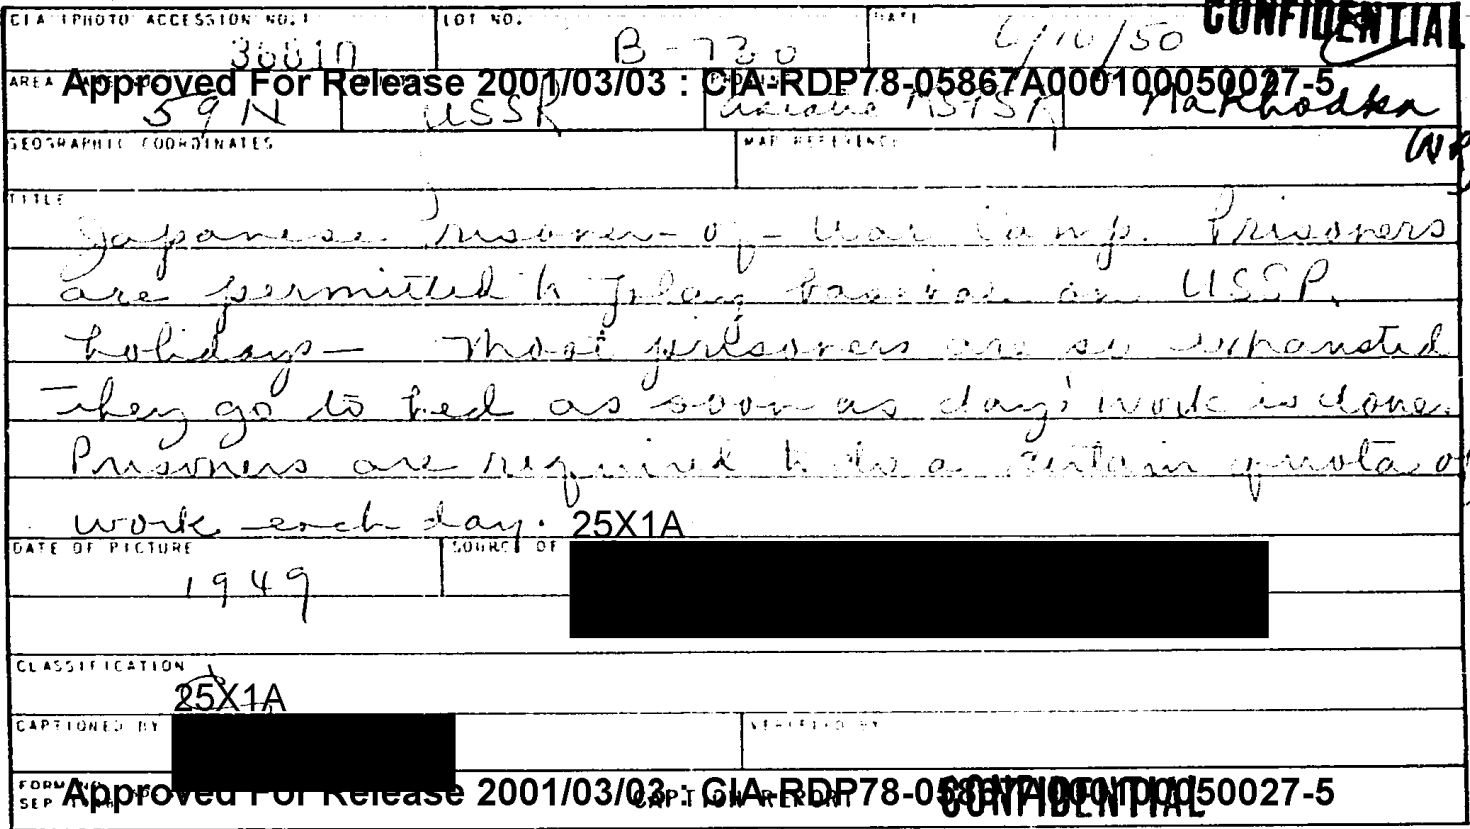 CIA PHOTO ACCESSION NO. LOT NO. DATE CONFIDENTIAL
B-730 6/10/50
Approved For Release 2001/03/03 : CIA-RDP78-05867A000100050027-5
AREA
59 N USSR Nakhodka
GEOGRAPHIC COORDINATES MAP REFERENCE
TITLE
Japanese Prisoner-of-War Camp. Prisoners
are permitted to play baseball on USSR
holidays— Most prisoners are so exhausted
They go to bed as soon as day's work is done.
Prisoners are required to do a certain quota of
work each day. 25X1A
DATE OF PICTURE SOURCE OF
1949
CLASSIFICATION
25X1A
CAPTIONED BY VERIFIED BY
FORM NO.
SEP
Approved For Release 2001/03/03 : CIA-RDP78-05867A000100050027-5
CAPTION REPORT CONFIDENTIAL